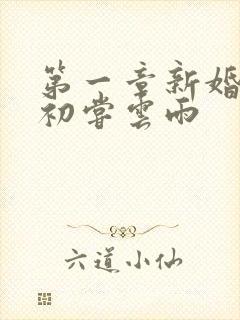 第一章新婚
初嘗雲雨
六道小仙